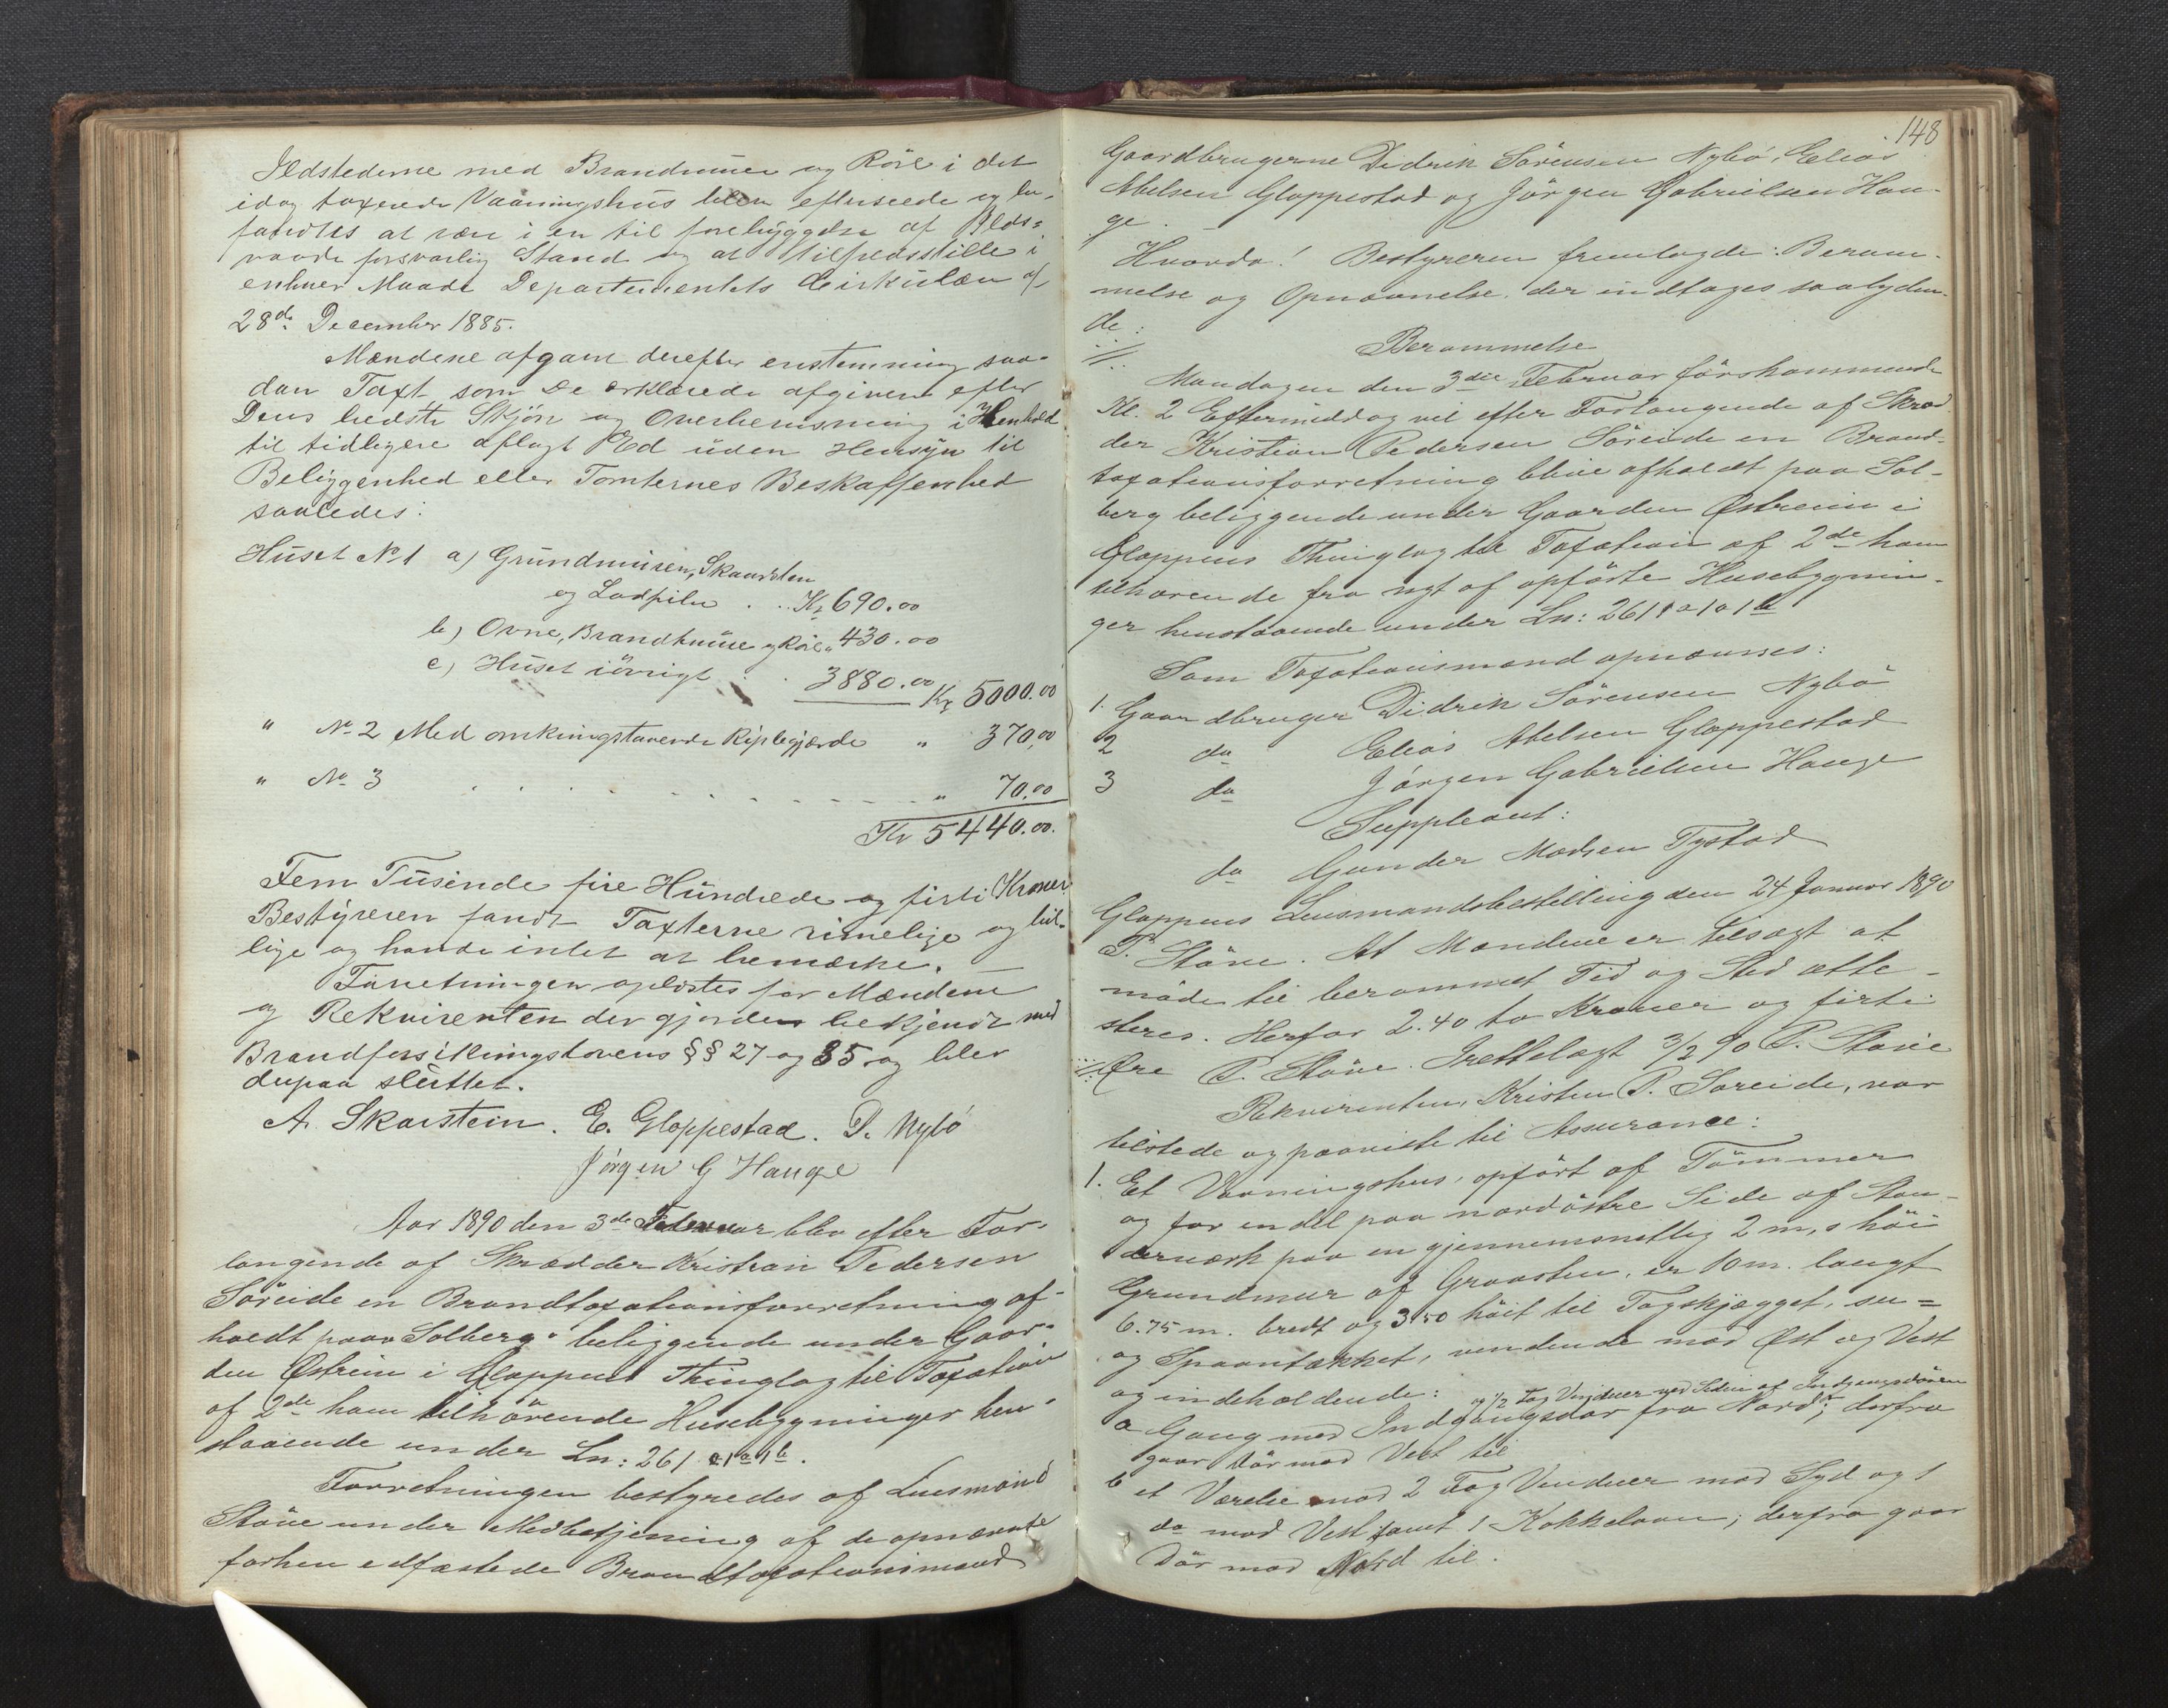 Ildstederne med Brandmure og Röre i det
idag taxerede Vaaningshus blev efterseede og be-
fandtes at være i en til forebyggelse af Ilds-
vaade forsvarlig Stand og at tilfredsstille i
enhver Maade Departementets Cirkulære af
28de December 1885.
Mændene afgave derefter enstemmig saa-
dan Taxt som De erklærede afgiven efter
Deres bedste Skjön og Overbevisning i Henhold
til tidligere aflagt Ed uden Hensyn til
Beliggenhed eller Tomternes Beskaffenhed
saaledes:
Huset No 1 a) Grundmuren, Skaarsten
og Ladpiler . . Kr 690.00
b) Ovne, Brandmure og Rör „ 430.00
c) Huset iövrigt . . 3880.00 Kr 5000.00
" No 2 Med omkringstaaende Ripsgjærde " 370,00
" No 3 . . . . . . . . . . " 70.00
Kr 5440.00.
Fem Tusinde fire Hundrede og firti Kroner
Bestyreren fandt Taxterne rimelige og bil-
lige og havde intet at bemærke.
Forretningen oplæstes for Mændene
og Rekvirenten der gjordes bekjendt med
Brandforsikringslovens §§ 27 og 35 og blev
derpaa sluttet.
A. Skarstein. E. Gloppestad. D. Nybö
Jörgen G Hauge
Aar 1890 den 3de Februar blev efter For-
langende af Skrædder Kristian Pedersen
Söreide en Brandtaxationsforretning af-
holdt paa „Solberg" beliggende under Gaar-
den Östrein i Gloppens Thinglag til Taxation
af 2de ham tilhörende Husebygninger hen-
staaende under Ln: 261 a1a1b.
Forretningen bestyredes af Lensmand
Stöve under Medbetjening af de opnævnte
forhen edfæstede Brandtaxationsmænd
148
Gaardbrugerne Didrik Sörensen Nybö, Elias
Abelsen Gloppestad og Jörgen Gabrielsen Hau-
ge.
Hvorda! Bestyreren fremlagde: Beram-
melse og Opnævnelse, der indtages saalyden-
de:
Berammelse
Mandagen den 3die Februar förstkommende
Kl. 2 Eftermiddag vil efter Forlangende af Skræd
der Kristian Pedersen Söreide en Brand-
taxationsforretning blive afholdt paa Sol-
berg beliggende under Gaarden Östrein i
Gloppens Thinglag til Taxation af 2de ham
tilhörende fra nyt af opförte Husebygnin-
ger henstaaende under Ln: 261 1a1a1b
Som Taxationsmænd opnævnes:
1. Gaardbruger Didrik Sörensen Nybö
2 do Elias Abelsen Gloppestad
3 do Jörgen Gabrielsen Hauge
Suppleant:
do Gunder Madsen Tystad
Gloppens Lensmandsbestilling den 24 Januar 1890
P. Stöve. At Mændene er tilsagt at
möde til berammet Tid og Sted atte-
steres. Herfor 2.40 to Kroner og firti
Öre P. Stöve. Irettelagt 3/2 90 P. Stöve
Rekvirenten, Kristen P. Söreide, var
tilstede og paaviste til Assurance:
1. Et Vaaningshus, opfört af Tömmer
og for en del paa nordöstre Side af Stan-
derværk paa en gjennemsnitlig 2 m, s höi
Grundmur af Graasten, er 10 m. langt
6.75 m. bredt og 3,50 höit til Tagskjægget, su=
og Spaantækket, vendende mod Öst og Vest
og indeholdende:
og 1/2 Fag Vinduer ved Siden af Indgangsdören
a Gang med Indgangsdör fra Nord; derfra
gaar Dör mod Vest til
b et Værelse med 2 Fag Vinduer mod Syd og 1
do mod Vest samt 1 Kokkelovn; derfra gaar
Dör mod Nord til.